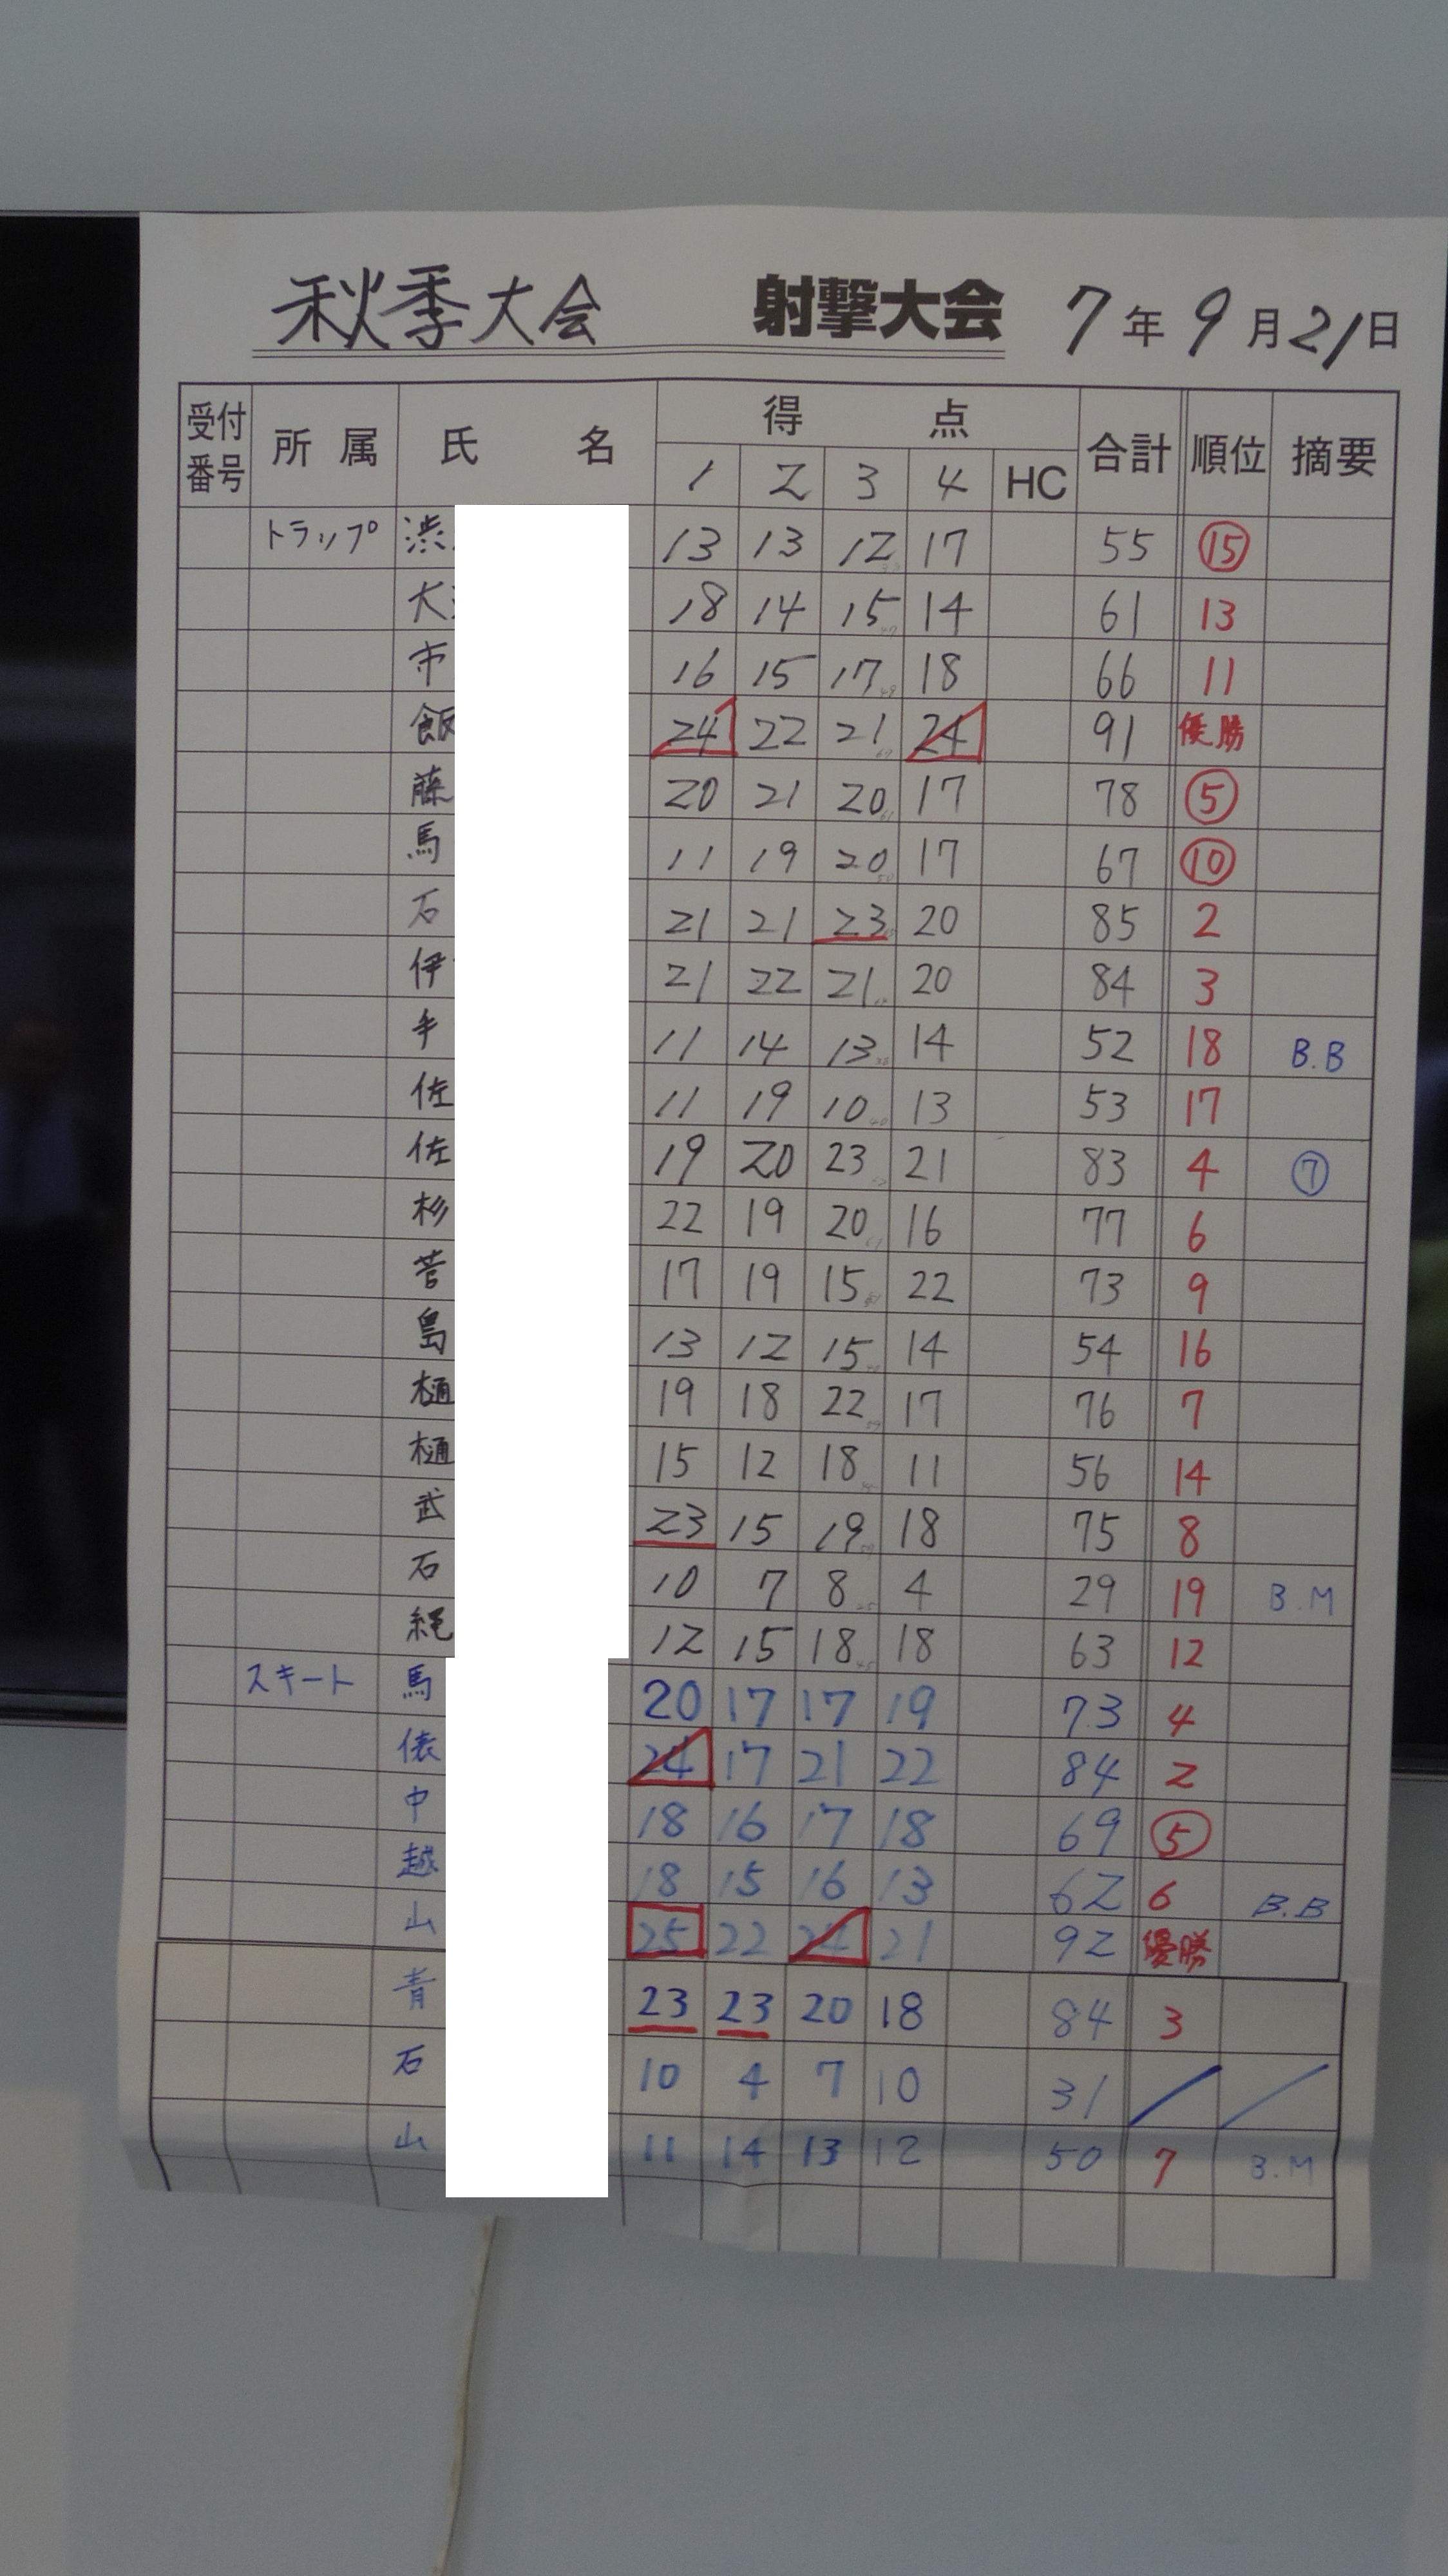 秋季大会 射撃大会 7年9月21日
受付番号 所属 氏名 得点 合計 順位 摘要
1 2 3 4 HC
トラップ 渋 13 13 12 17 55 ⑮
大 18 14 15 14 61 13
市 16 15 17 18 66 11
飯 24 22 21 24 91 優勝
藤 20 21 20 17 78 ⑤
馬 11 19 20 17 67 ⑩
石 21 21 23 20 85 2
伊 21 22 21 20 84 3
手 11 14 13 14 52 18 B.B
佐 11 19 10 13 53 17
佐 19 20 23 21 83 4 ⑦
杉 22 19 20 16 77 6
菅 17 19 15 22 73 9
島 13 12 15 14 54 16
樋 19 18 22 17 76 7
樋 15 12 18 11 56 14
武 23 15 19 18 75 8
石 10 7 8 4 29 19 B.M
縄 12 15 18 18 63 12
スキート 馬 20 17 17 19 73 4
俵 24 17 21 22 84 2
中 18 16 17 18 69 ⑤
越 18 15 16 13 62 6 B.B
山 25 22 24 21 92 優勝
青 23 23 20 18 84 3
石 10 4 7 10 31
山 11 14 13 12 50 7 B.M